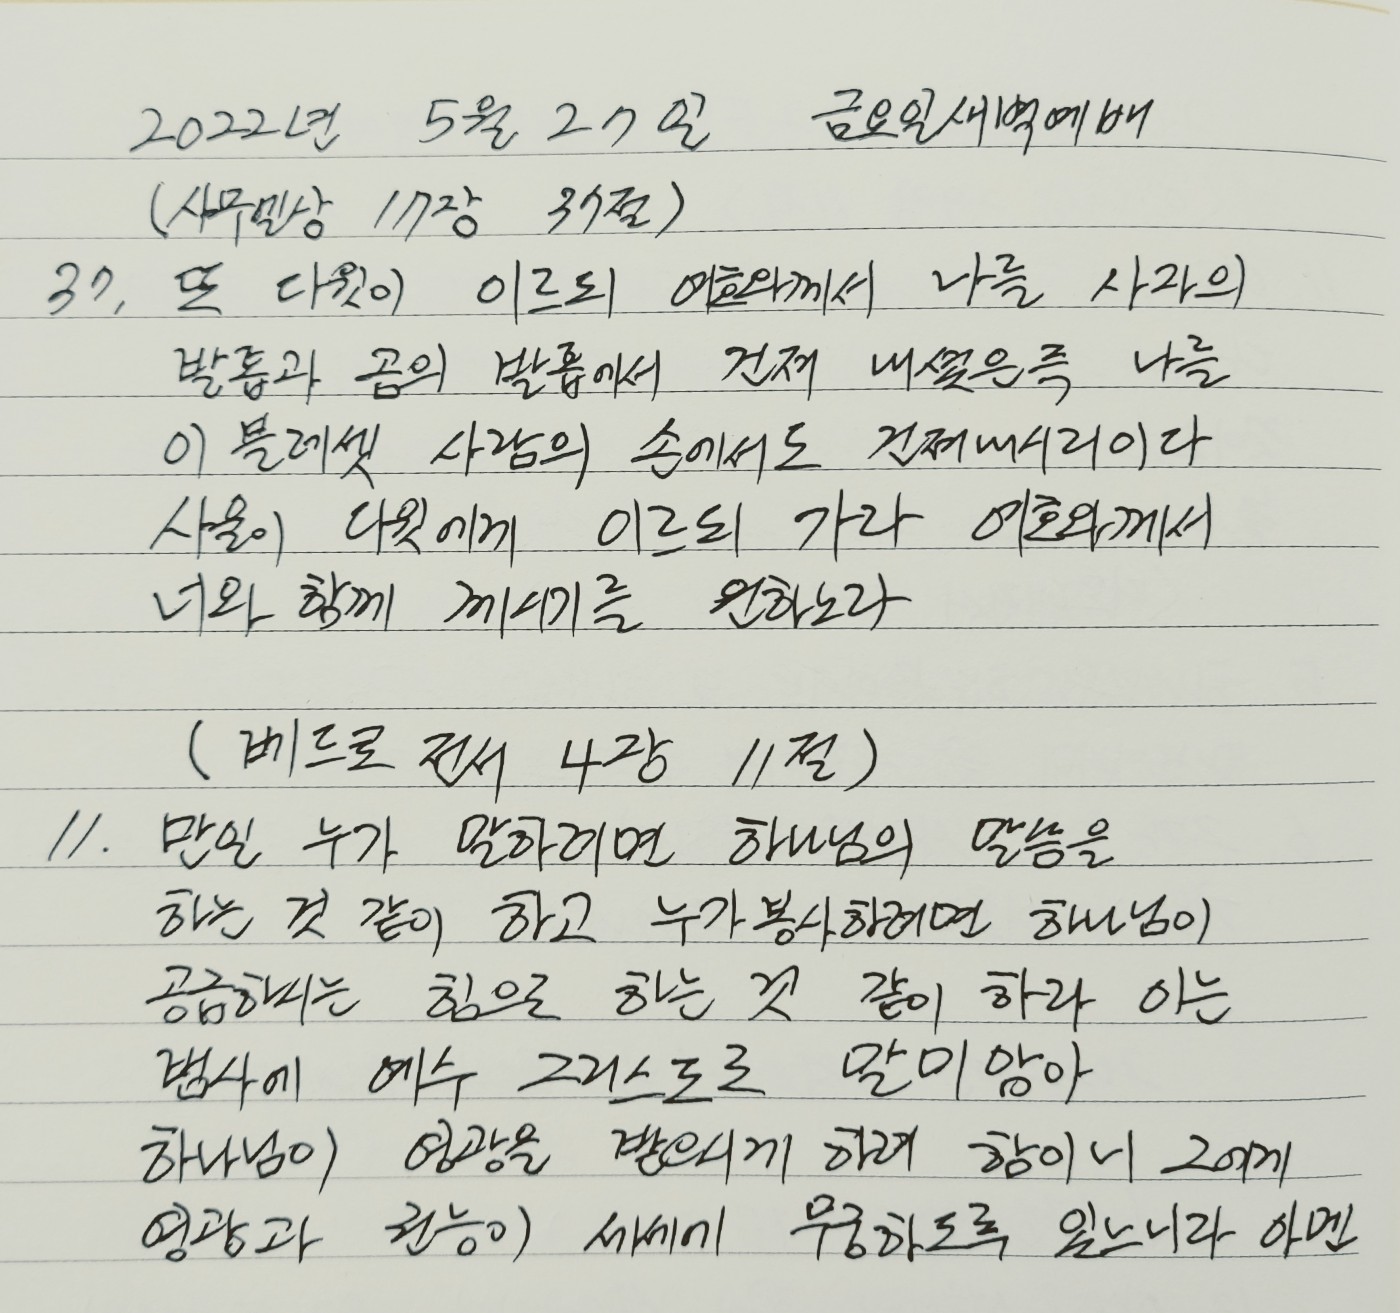 2022년 5월 27일 금요일새벽예배
(사무엘상 17장 37절)
37. 또 다윗이 이르되 여호와께서 나를 사자의
발톱과 곰의 발톱에서 건져 내셨은즉 나를
이 블레셋 사람의 손에서도 건져내시리이다
사울이 다윗에게 이르되 가라 여호와께서
너와 함께 께시기를 원하노라
(베드로 전서 4장 11절)
11. 만일 누가 말하려면 하나님의 말씀을
하는 것 같이 하고 누가봉사하려면 하나님이
공급하시는 힘으로 하는 것 같이 하라 이는
범사에 예수 그리스도로 말미암아
하나님이 영광을 받으시게 하려 함이니 그에게
영광과 권능이 세세에 무궁하도록 있느니라 아멘